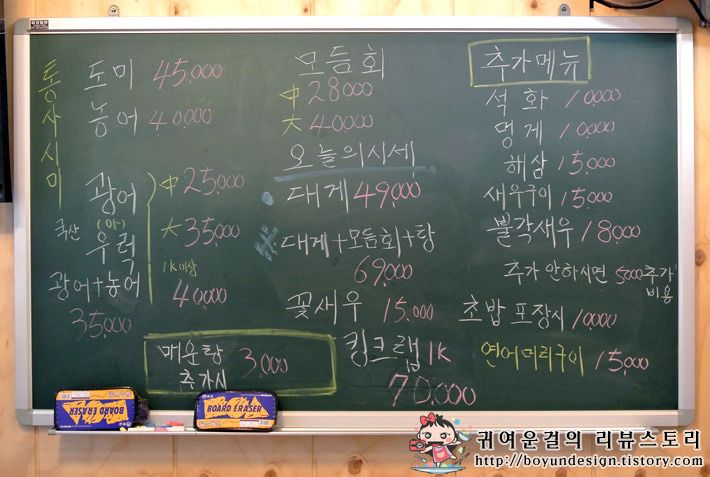 통사시미
도미 45,000
농어 40,000
광어
국산 (小) 우럭
中 25,000
大 35,000
1K이상
40,000
광어+농어
35,000
매운탕
추가시 3,000
모듬회
中 28,000
大 40,000
오늘의시세
대게 49,000
※ 대게+모듬회+탕
69,000
꽃새우 15,000
킹크랩 1K
70,000
추가메뉴
석화 10,000
멍게 10,000
해삼 15,000
새우구이 15,000
뿔각새우 18,000
추가 안하시면 5000 추가
비용
초밥 포장시 10000
연어머리구이 15,000
BOARD ERASER
BOARD ERASER
귀여운걸의 리뷰스토리
http://boyundesign.tistory.com